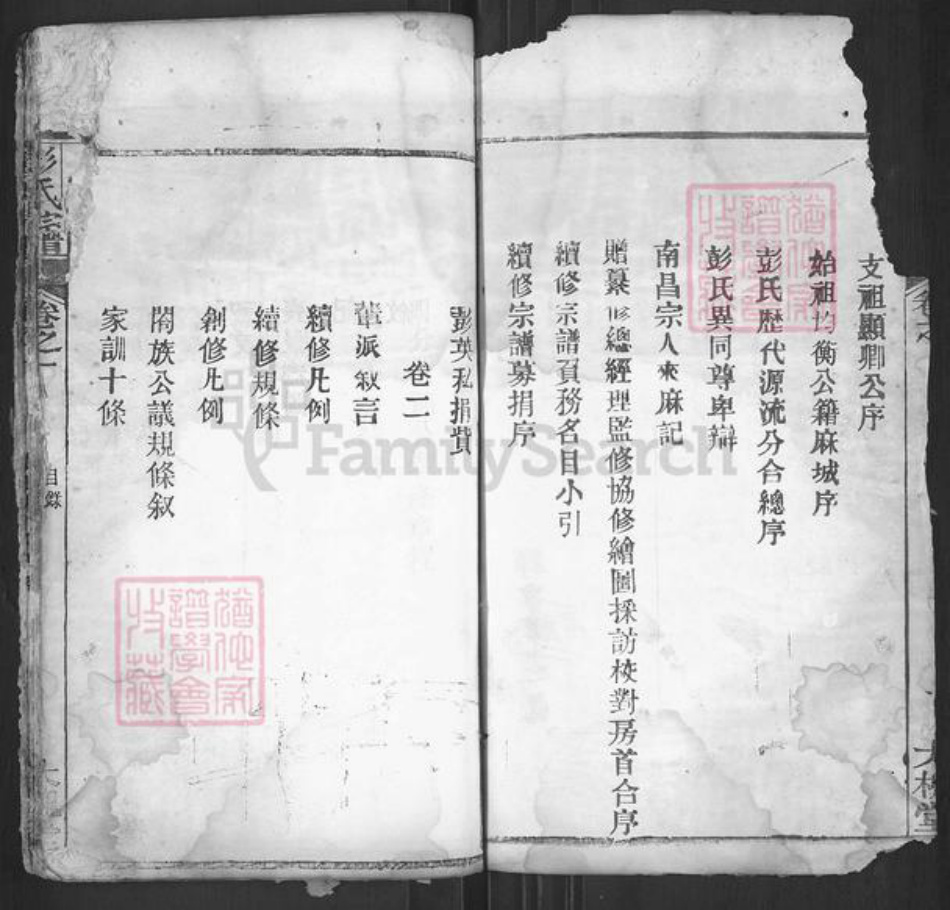 支祖顯卿公序
始祖均衡公籍麻城序
彭氏歷代源流分合總序
彭氏異同尊卑辯
南昌宗人來麻記
贈纂修總經理監修協修繪圖採訪校對房首合序
續修宗譜頁務名目小引
續修宗譜募捐序
彭英私捐費
卷二
輩派叙言
續修凡例
續修規條
創修凡例
闔族公議規條叙
家訓十條
彭氏宗譜
卷之一
目錄
大楼堂
FamilySearch
譜學會
收藏